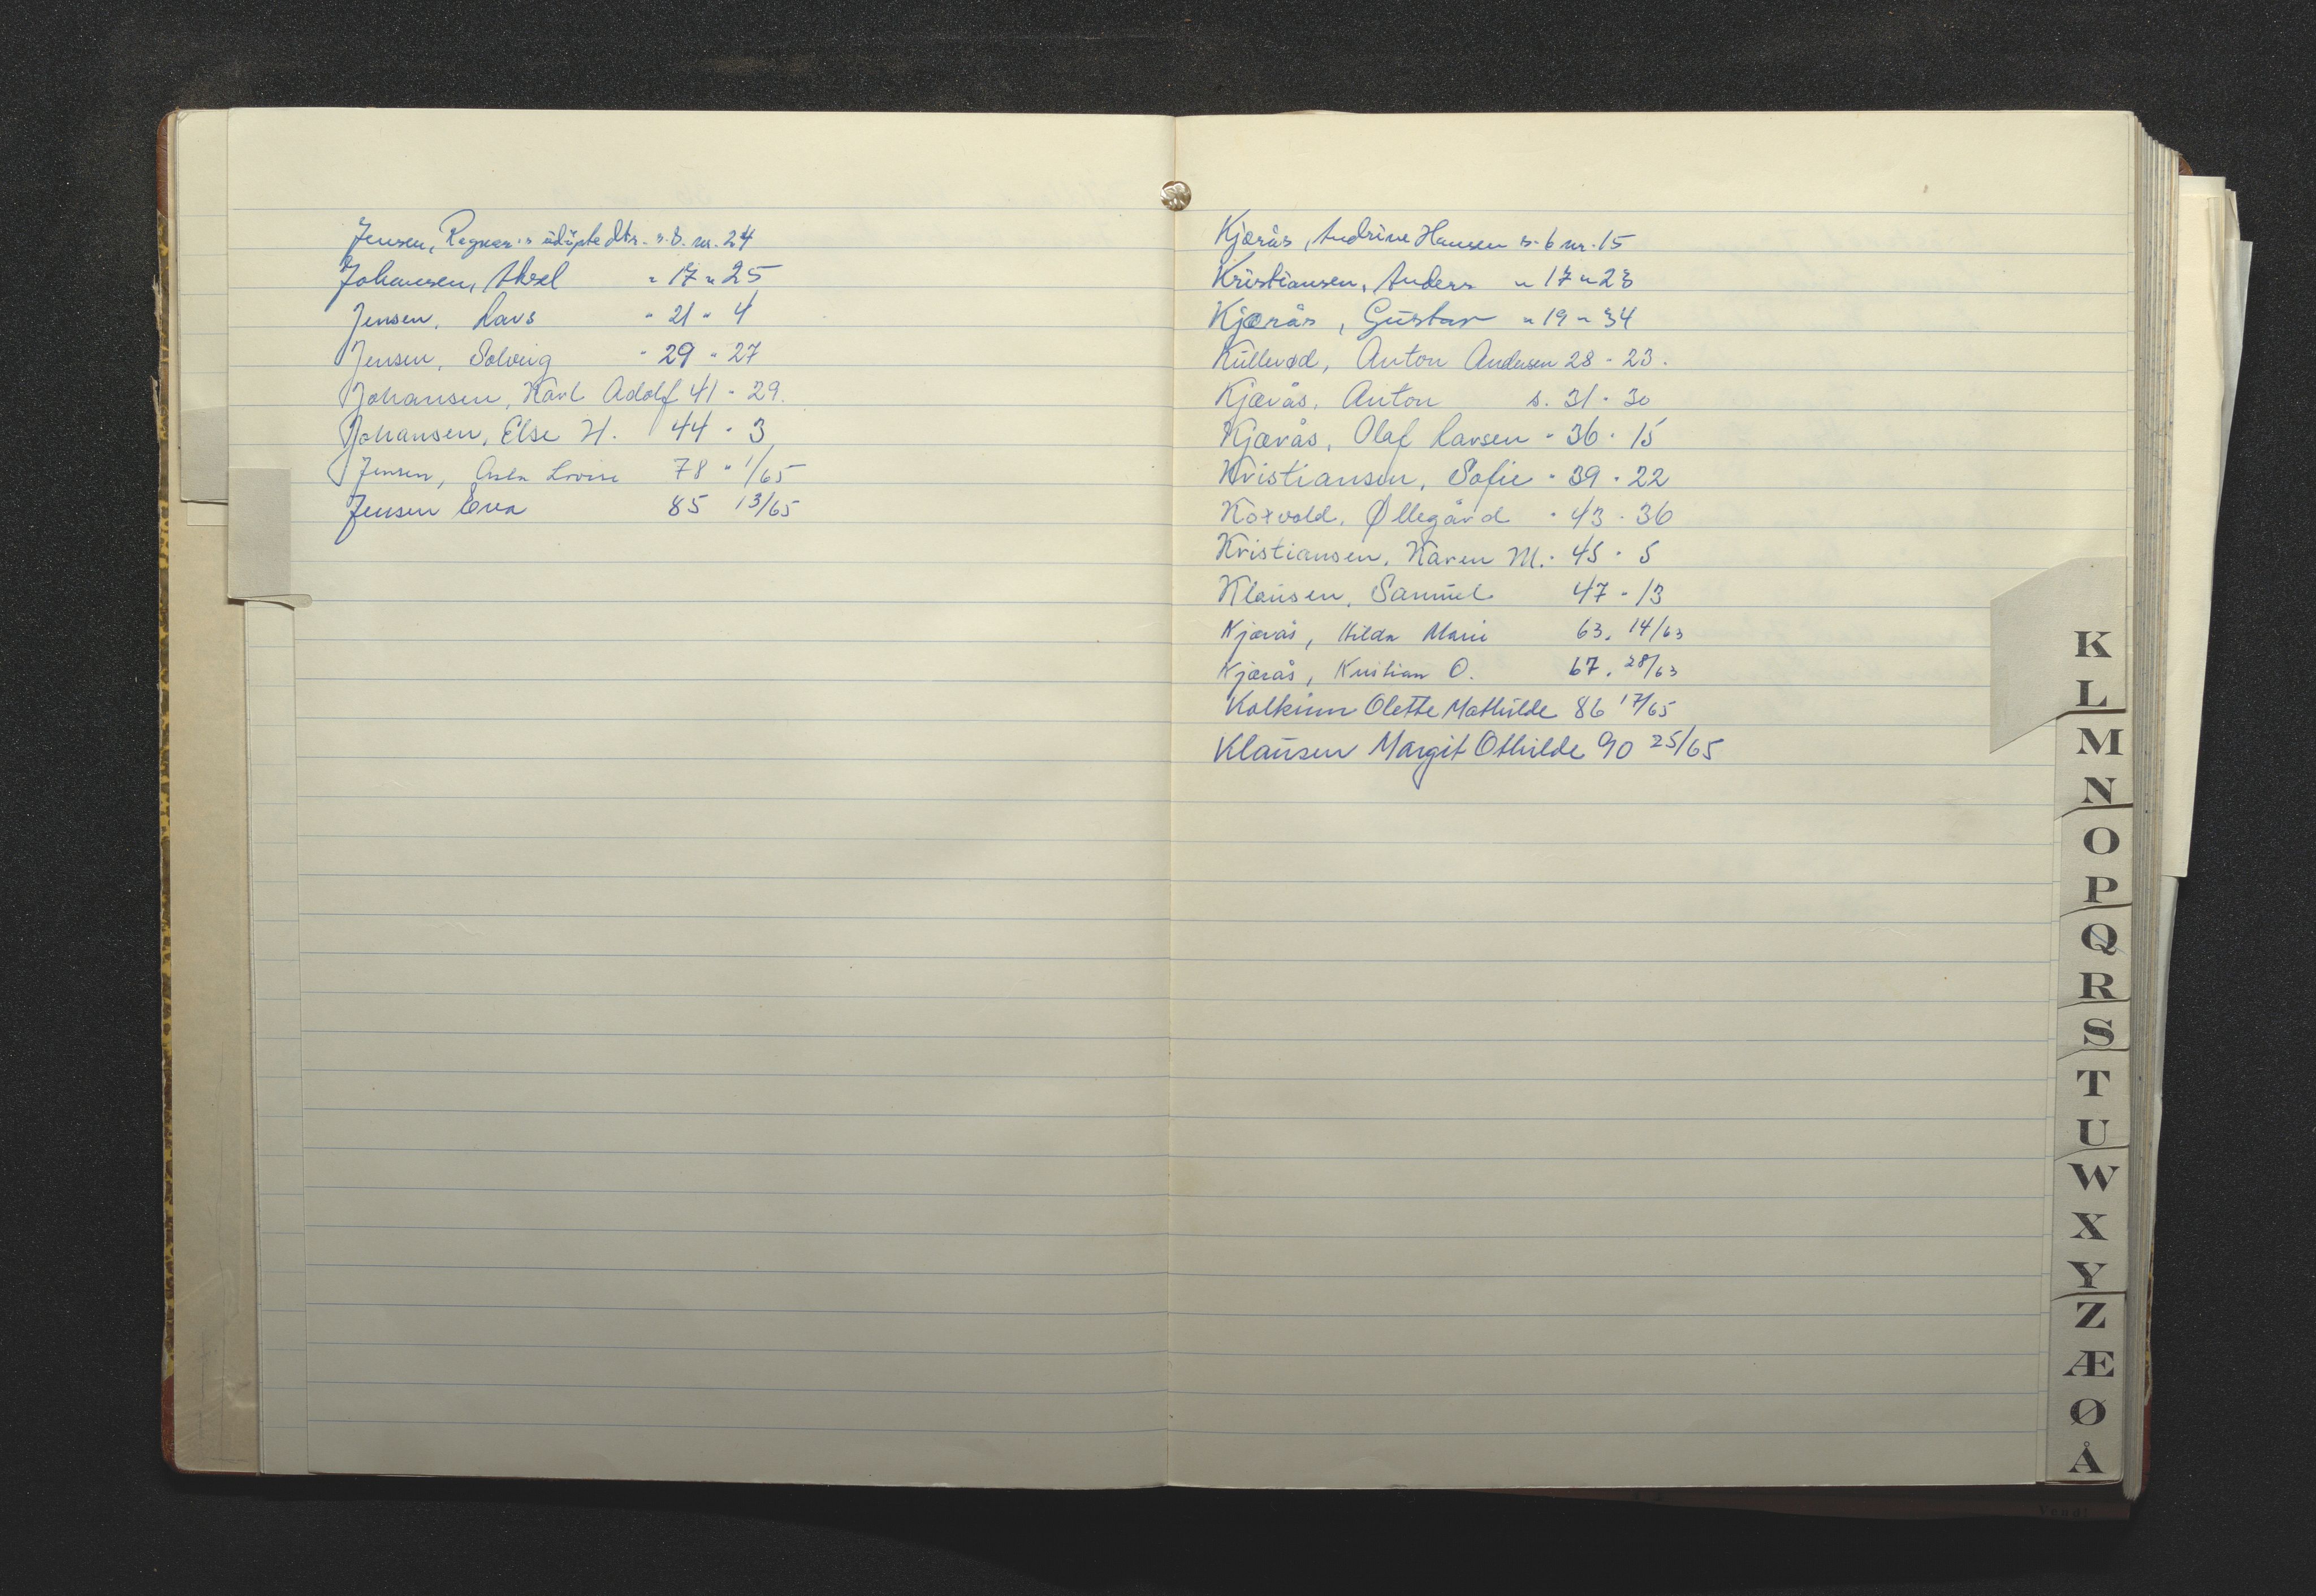 Jensen, Ragnar's udøpte dtr. s. 8. nr. 24
Johansen, Aksel " 17 " 25
Jensen, Lars " 21 " 4
Jensen, Solveig " 29 " 27
Johansen, Karl Adolf 41 " 29.
Johansen, Else H. 44 " 3
Jensen, Louise 78 " 1/65
Jensen Eva 85 13/65
Kjærås, Andrine Hansen s. 6 nr. 15
Kristiansen, Anders " 17 " 28
Kjærås, Gustav " 19 " 34
Kullerød, Anton Andersen 28 - 23.
Kjærås, Anton s. 31 - 30
Kjærås, Olaf Larsen " 36 - 15
Kristiansen, Sofie " 39 - 22
Koxvold, Øllegård " 43 - 36
Kristiansen, Karen M. " 45 - 5
Klausen, Samuel 47 - 13
Kjærås, Hilda Marie 63. 14/63
Kjærås, Kristian O. 67. 28/63
Kolkinn Olette Mathilde 86 17/65
Klausen Margit Othilde 90 25/65
K
L
M
N
O
P
Q
R
S
T
U
W
X
Y
Z
Æ
Ø
Å